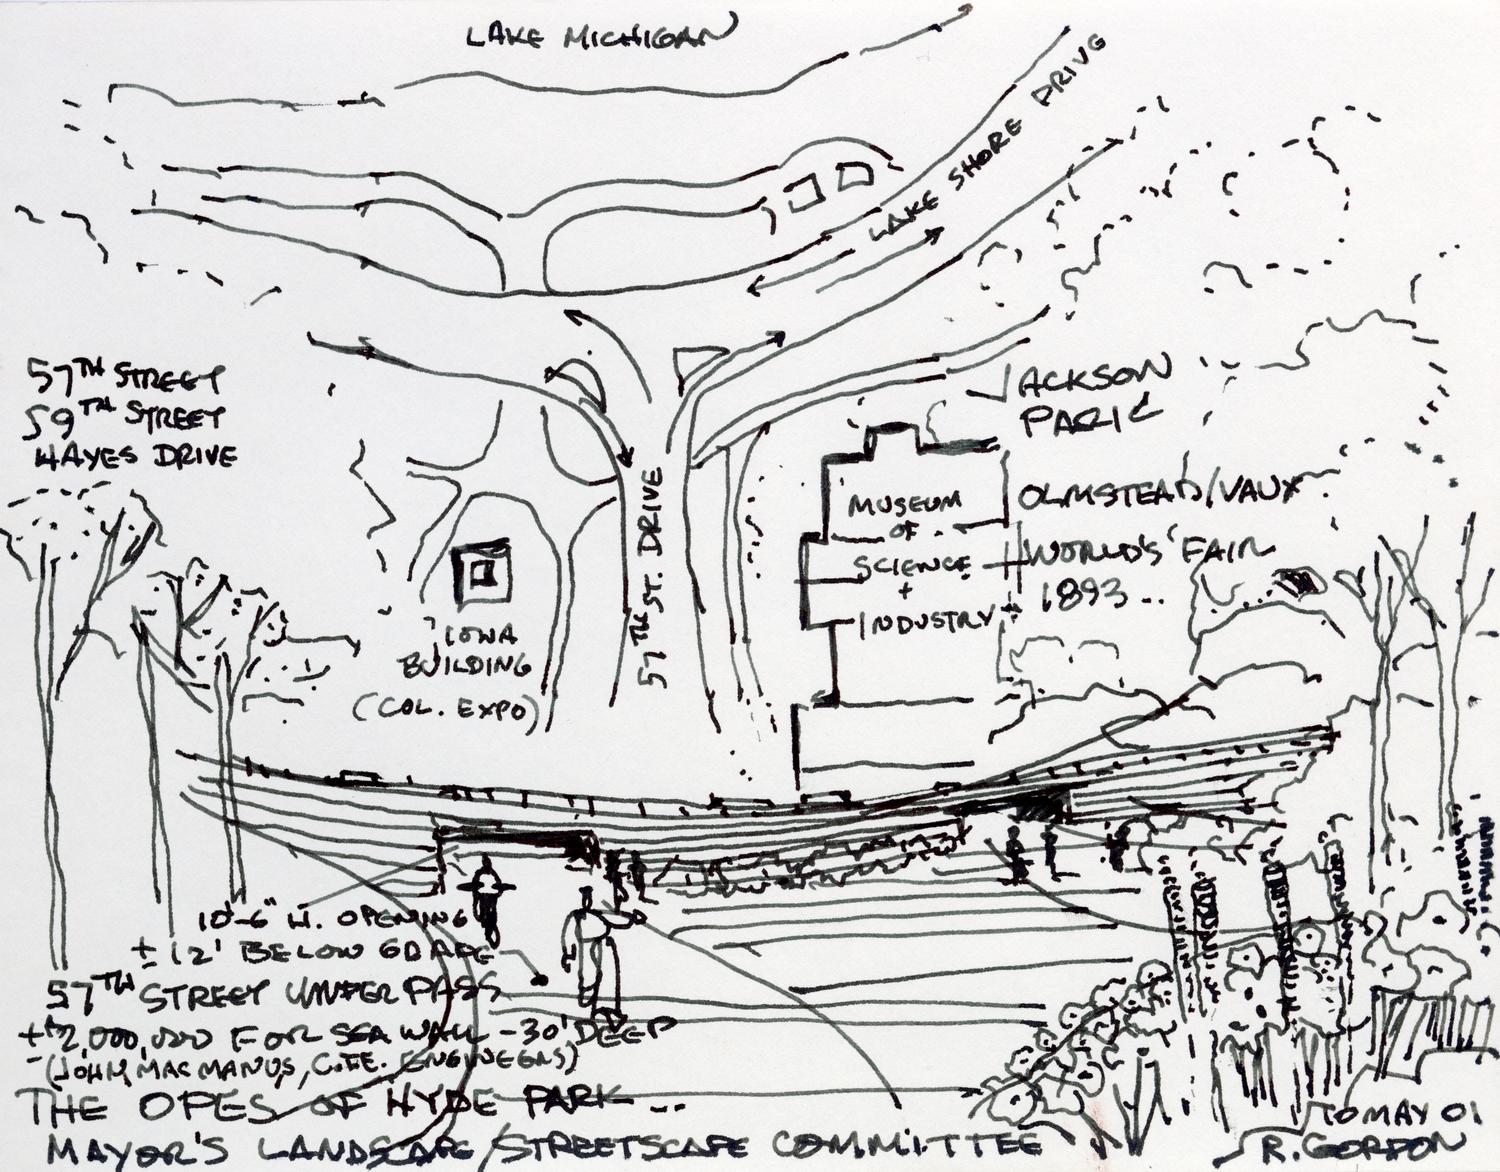 LAKE MICHIGAN
LAKE SHORE DRIVE
57TH STREET
59TH STREET
HAYES DRIVE
JACKSON
PARK
OLMSTEAD/VAUX
WORLD'S FAIR
1893..
MUSEUM
OF
SCIENCE
+
INDUSTRY
57TH ST. DRIVE
IOWA
BUILDING
(COL. EXPO)
10'-6" H. OPENING
± 12' BELOW GRADE
57TH STREET UNDERPASS
±$2,000,000 FOR SEA WALL -30' DEEP
(JOHN MACMANUS, C.T.E. ENGINEERS)
THE OPES OF HYDE PARK...
MAYOR'S LANDSCAPE/STREETSCAPE COMMITTEE
10 MAY 01
R. GORDON